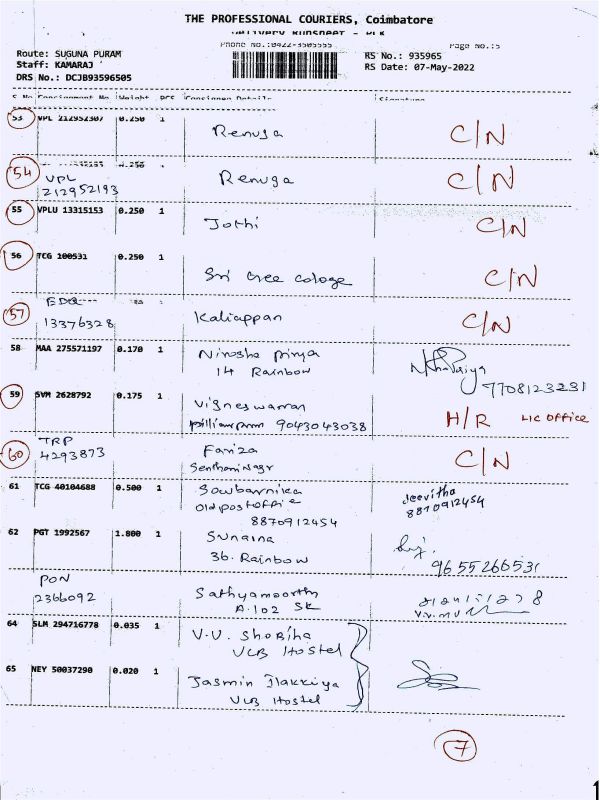 THE PROFESSIONAL COURIERS, Coimbatore
Delivery Runsheet -
Phone No.:0422-3505555 Page No.:5
Route: SUGUNA PURAM
Staff: KAMARAJ
DRS No.: DCJB93596505
RS No.: 935965
RS Date: 07-May-2022
S.No Consignment No. Weight PCS Consignee Details Signature
53 VPL 212952307 0.250 1 Renuga C/N
54 VPL 212952193 Renuga C/N
55 VPLU 13315153 0.250 1 Jothi C/N
56 TCG 100531 0.250 1 Sri cologe C/N
57 13376328 Kaliappan C/N
58 MAA 275571197 0.170 1 Nirosha Priya
14 Rainbow
7708123231
59 SVM 2628792 0.175 1 Vigneswaran H/R LIC OFFICE
9043043038
60 TRP 4293873 Fariza C/N
61 TCG 40104688 0.500 1 Sowbarnika
old post office
8870912454
Jeevitha
8870912454
62 PGT 1992567 1.800 1 Sunaina
36. Rainbow
9655266531
PON
2366092 Sathyamoorthy
A.102 SK
64 SLM 294716778 0.035 1 V.V. Shobiha
VCB Hostel
65 NEY 50037290 0.020 1 Jasmin Ilakkiya
VCB Hostel
7
1